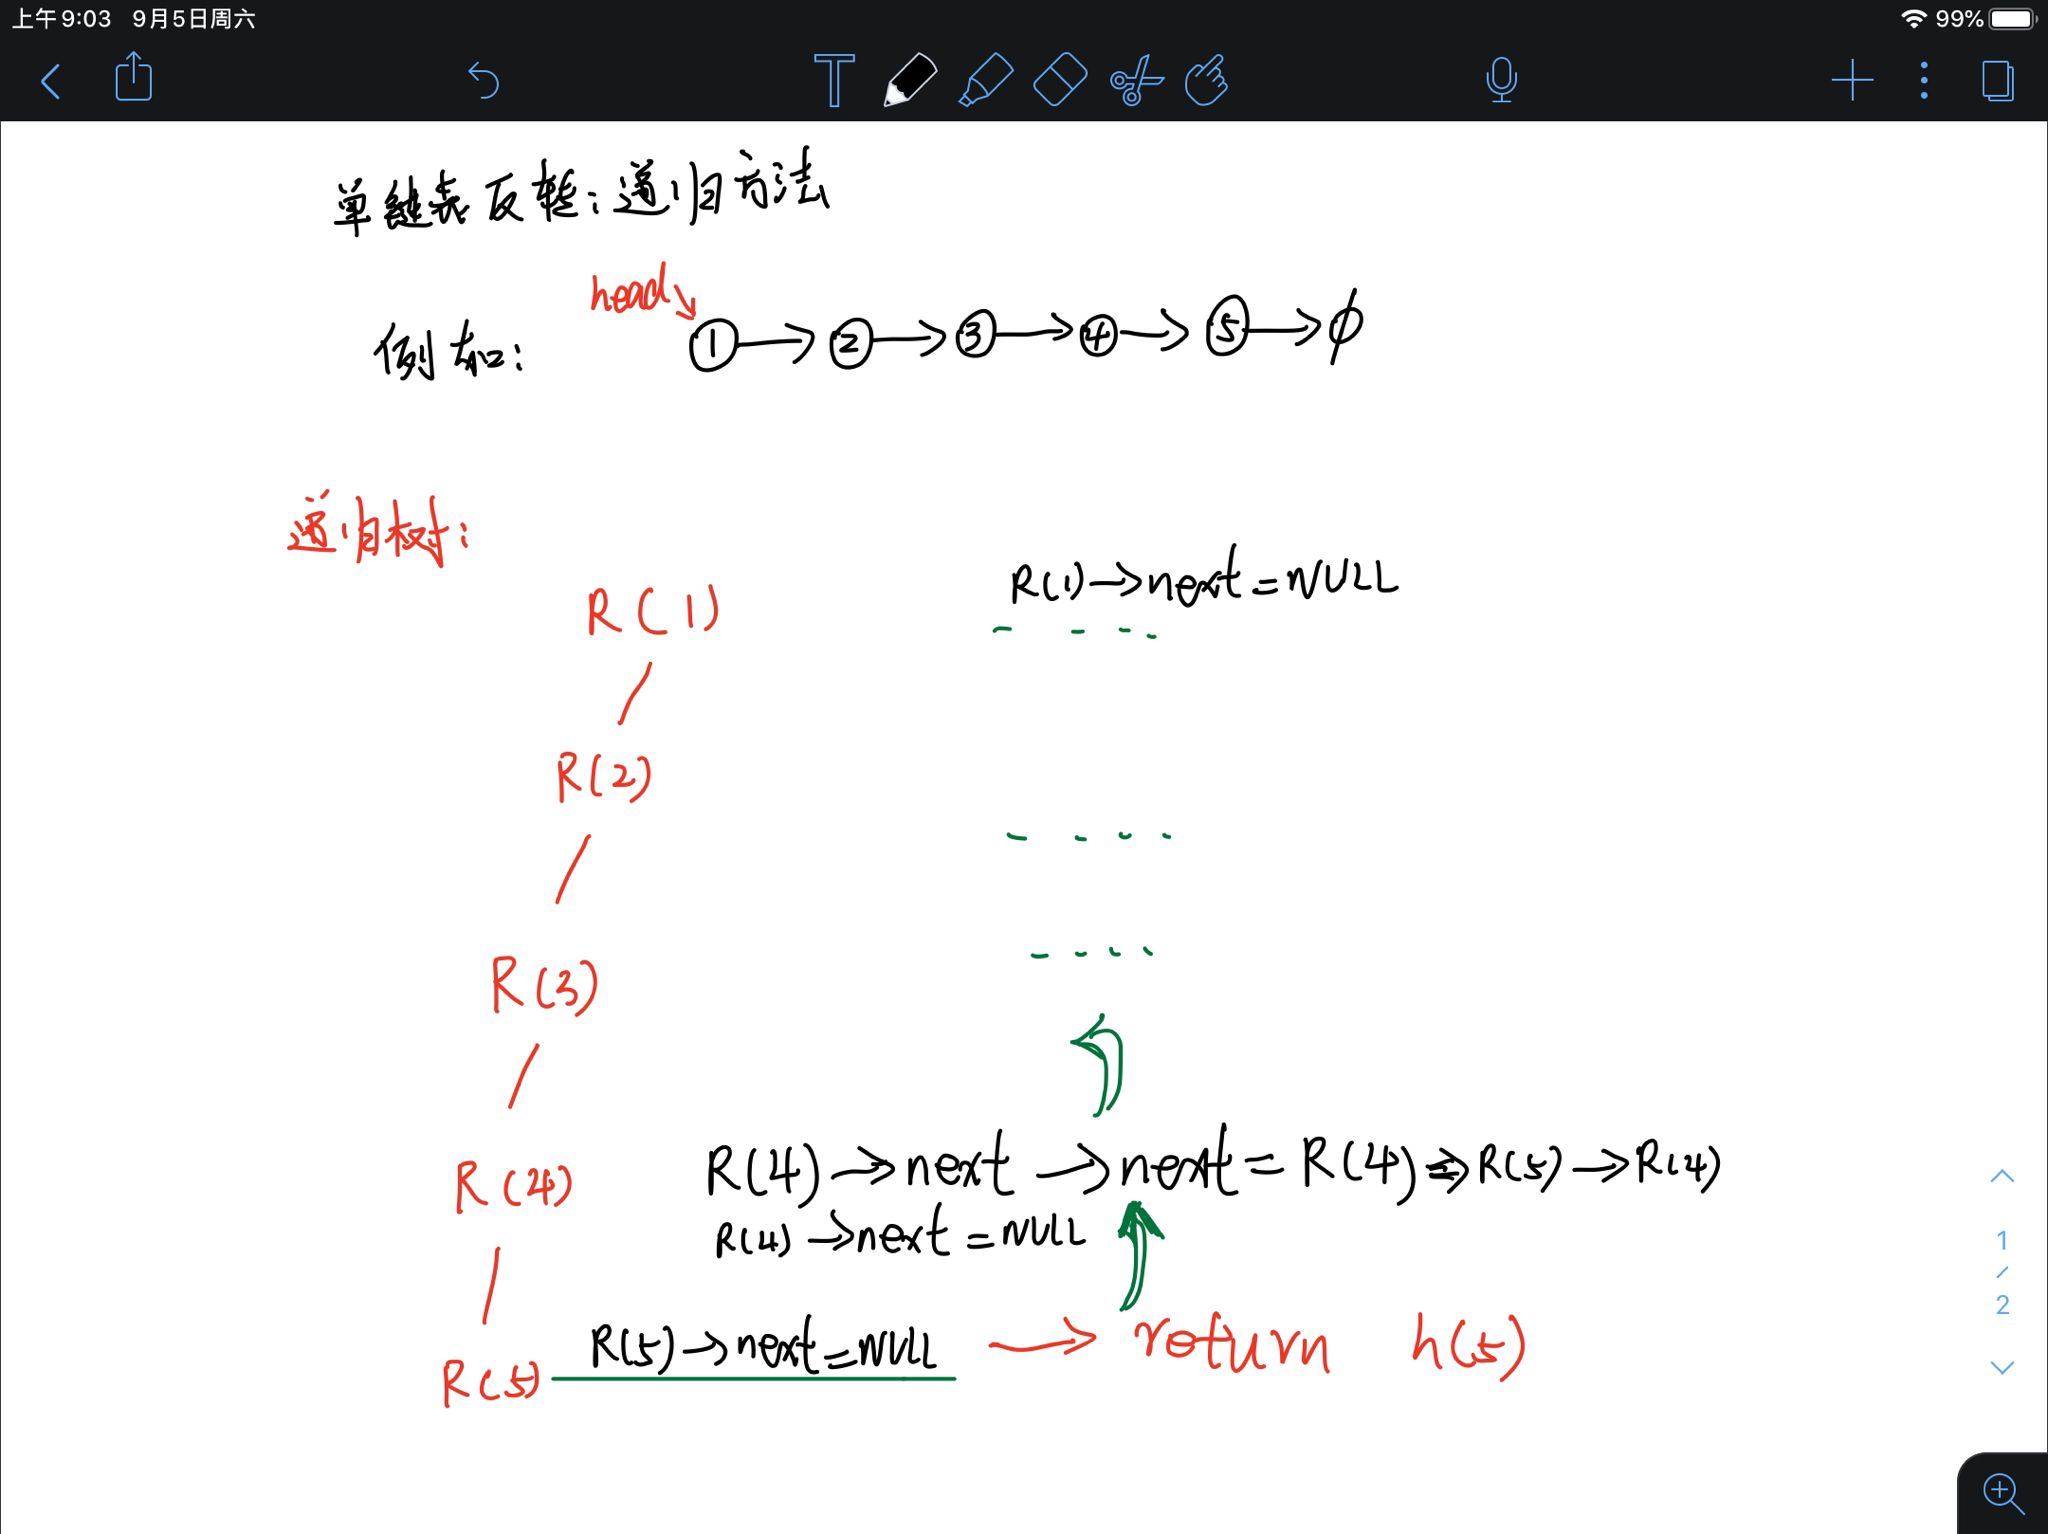 上午9:03 9月5日周六 99%
单链表反转:递归方法
head
例如: 1 → 2 → 3 → 4 → 5 → ∅
递归树:
R(1)->next=NULL
R(1)
R(2)
R(3)
R(4) R(4)->next->next=R(4) => R(5)->R(4)
R(4)->next=NULL
R(5) R(5)->next=NULL → return h(5)
1
/
2